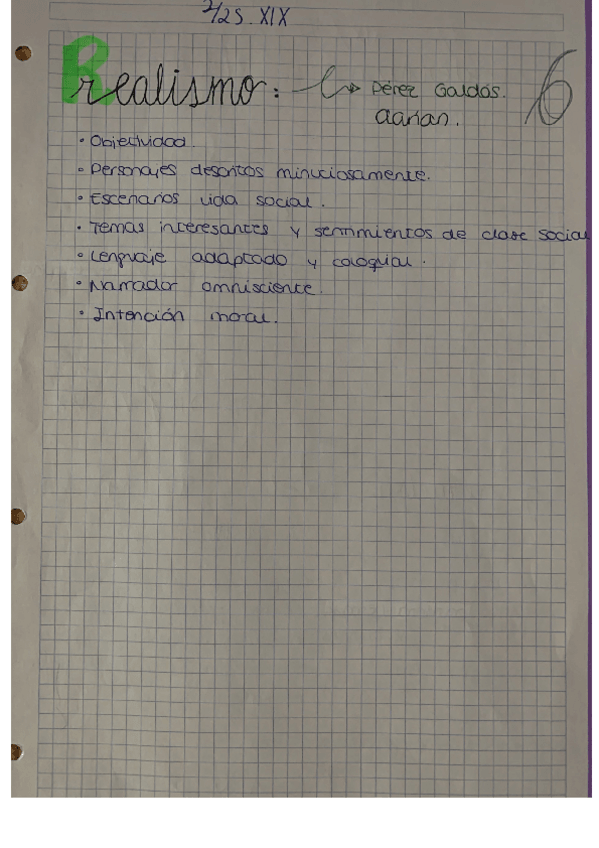 2/2 S. XIX
Realismo: → Pérez Galdós.
Clarían.
6
• Objetividad.
• Personajes descritos minuciosamente.
• Escenarios vida social.
• Temas interesantes y sentimientos de clase social
• Lenguaje adaptado y coloquial.
• Narrador omnisciente.
• Intención moral.